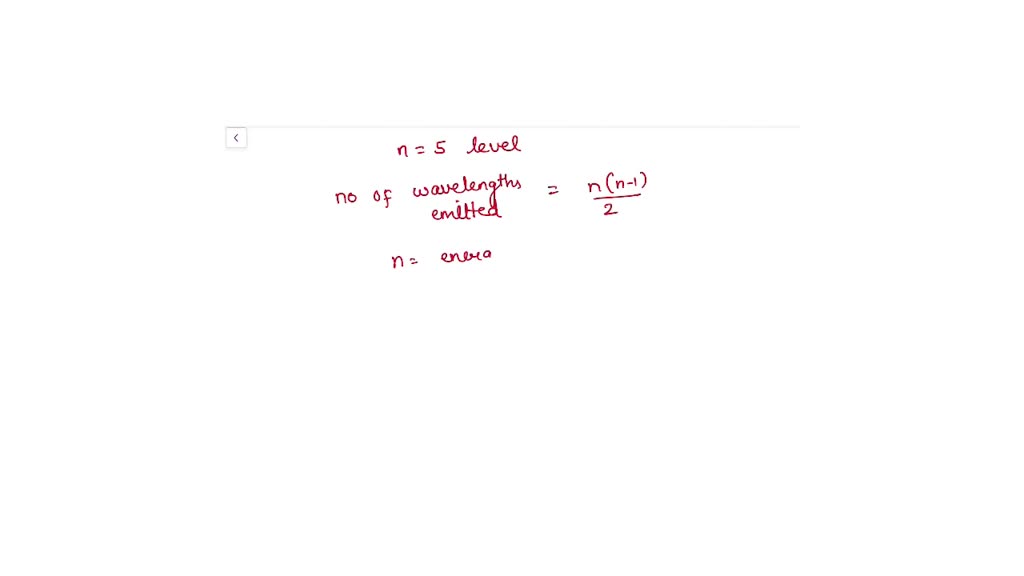 n = 5 level
no of wavelengths emitted = n(n-1)/2
n = enera